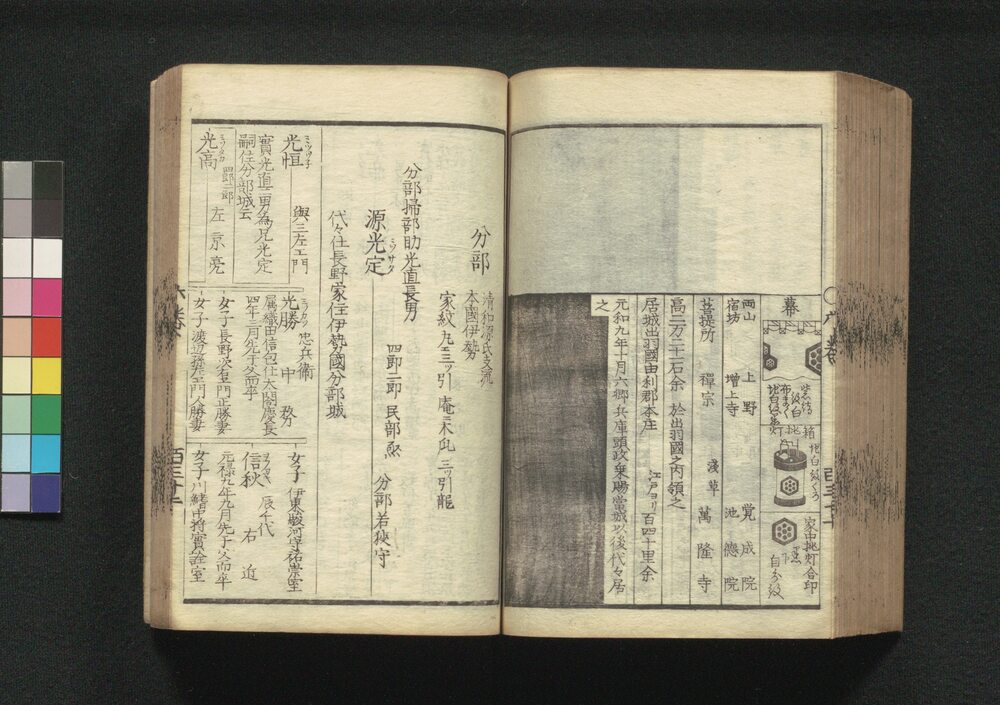 幕
地白紋
箱挑灯
地白紋くろ
家中挑灯合印
自分紋
両山 上野 覚成院
宿坊 増上寺 池徳院
菩提所 禪宗 淺草 萬隆寺
高二万二十一石余 於出羽國之内領之
居城出羽國由利郡本庄 江戸ヨリ 百四十里余
元和九年十月六郷兵庫頭政乗賜當城以後代々居
之
分部 清和源氏支流
本國伊勢
家紋 丸ニ三ッ引
分部掃部助光直長男
源光定 ミツサダ 四郎二郎 民部
分部若狹守
代々住長野家住伊勢國分部城
光恒 與三左エ門
實光直二男為兄光定
嗣住分部城云
光高 ミツタカ 四郎二郎 左京亮
光勝 ミツカツ 忠兵衛 中務
属織田信包仕太閤慶長
四年二月先于父而卒
女子 長野次右エ門正勝妻
女子
女子 伊東駿河守祐崇室
信秋 辰千代 右近
元禄九年九月先于父而卒
女子